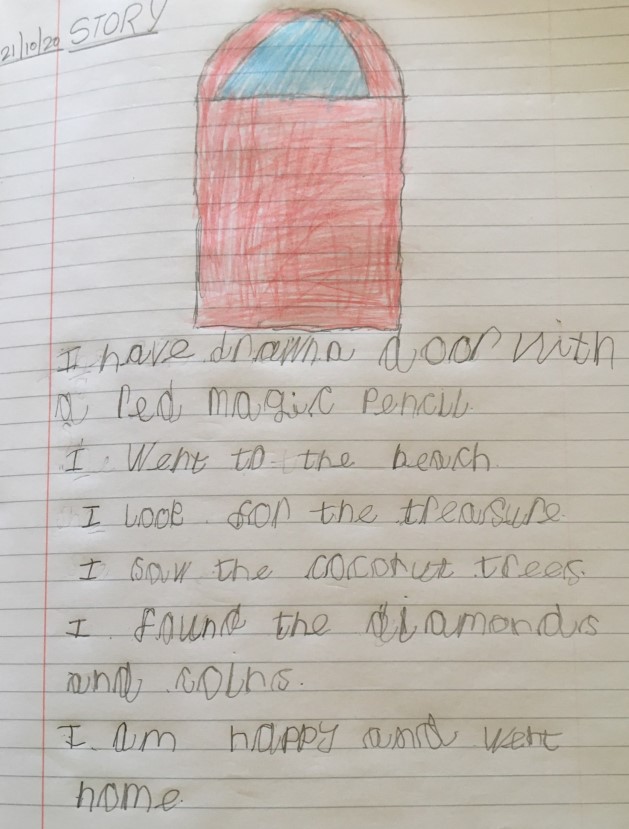 21/10/20 STORY
I have drawn a door with
a red magic pencil.
I went to the beach.
I look for the treasure.
I saw the coconut trees.
I found the diamonds
and coins.
I am happy and went
home.